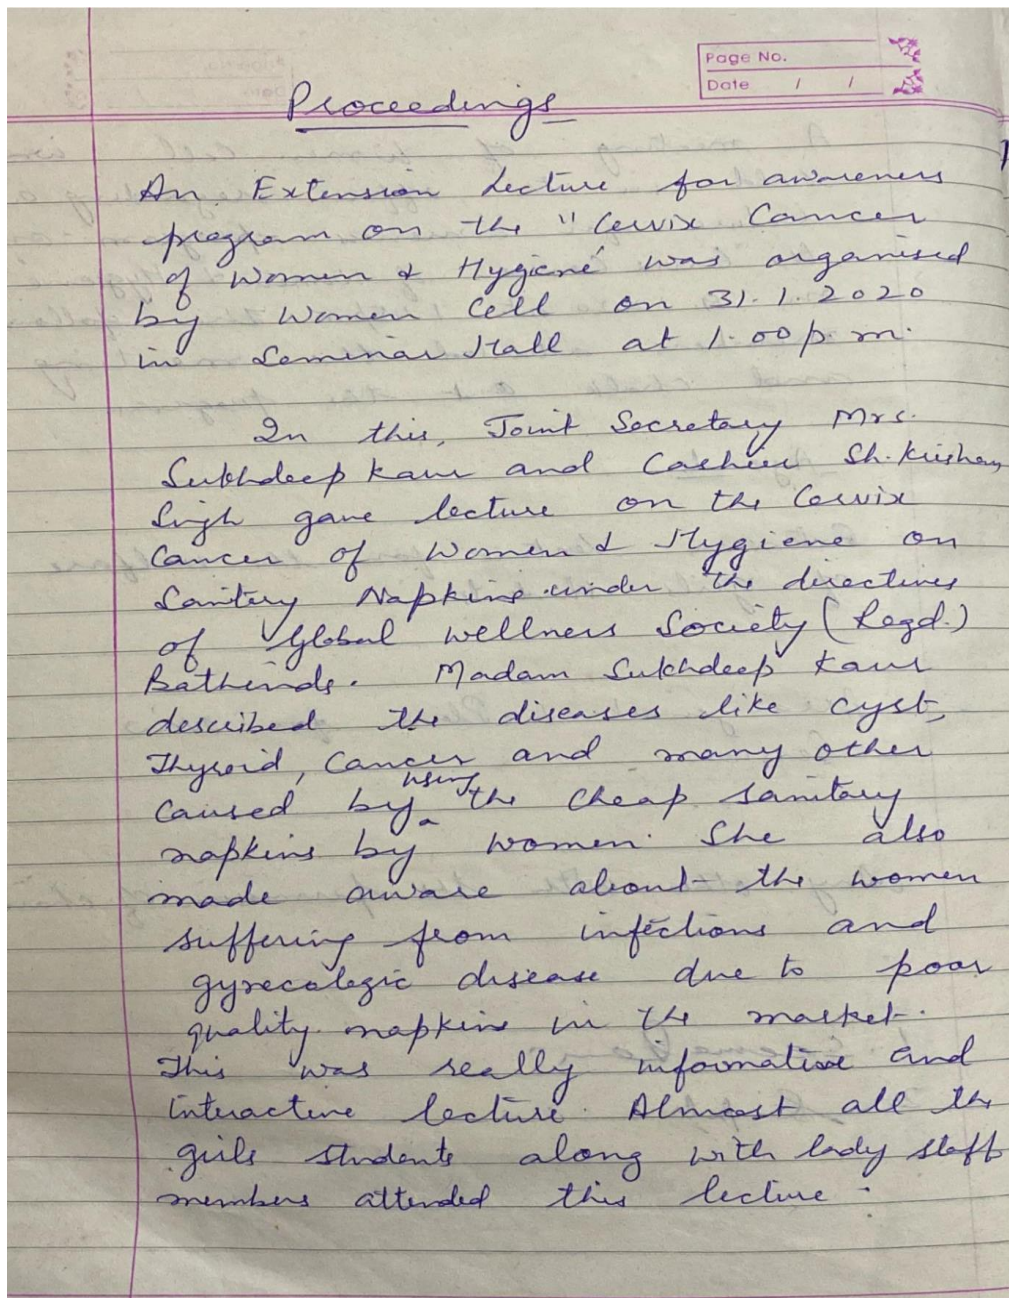 Page No.
Date / /
Proceedings
An Extension Lecture for awareness
program on the "Cervix Cancer
of Women & Hygiene' was organised
by Women Cell on 31.1.2020
in Seminar Hall at 1.00 p.m.
In this, Joint Secretary Mrs.
Sukhdeep Kaur and Cashier Sh. Krishan
Singh gave lecture on the Cervix
Cancer of Women & Hygiene on
Sanitary Napkins under the directives
of Global Wellness Society (Regd.)
Bathinda. Madam Sukhdeep Kaur
described the diseases like cyst,
Thyroid, Cancer and many other
caused by using the cheap sanitary
napkins by women. She also
made aware about the women
suffering from infections and
gynecologic disease due to poor
quality napkins in the market.
This was really informative and
interactive lecture. Almost all the
girls students along with lady staff
members attended this lecture.